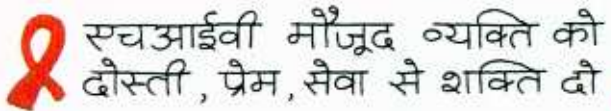 एचआईवी मौजूद व्यक्ति को
दोस्ती, प्रेम, सेवा से शक्ति दो